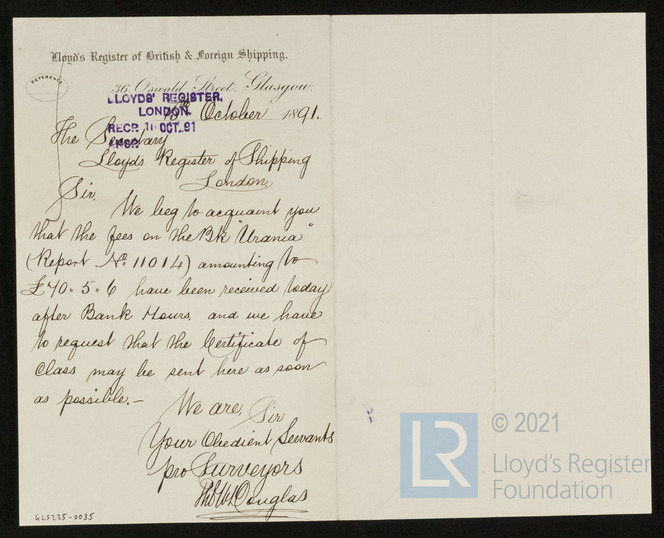 Lloyd's Register of British & Foreign Shipping.
REFERENCE
36, Oswald Street, Glasgow.
LLOYDS' REGISTER,
LONDON.
October 1891.
RECD OCT. 91
The Secretary
Lloyds Register of Shipping
London
Sir,
We beg to acquaint you
that the fees on the Bk "Urania"
(Report No. 11014) amounting to
£40.5.6 have been received today
after Bank Hours, and we have
to request that the Certificate of
Class may be sent here as soon
as possible.—
We are, Sir
Your Obedient Servants
pro Surveyors
Douglas
GLS225-0035
LR
© 2021
Lloyd's Register
Foundation